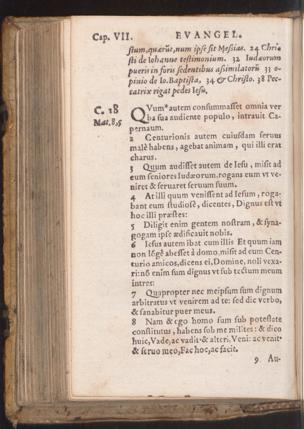 Cap. VII. EVANGEL.
stum, quærũt, num ipse sit Messias. 24 Chri-
sti de Iohanne testimonium. 32 Iudæorum
pueris in foris sedentibus assimilatorũ 33 o-
pinio de Io. Baptista, 34 & Christo. 38 Pec-
catrix rigat pedes Iesu.
C. 18
Mat. 8,5
QVum autem consummasset omnia ver
ba sua audiente populo, intravit Ca-
pernaum.
2 Centurionis autem cuiusdam servus
malè habens, agebat animam, qui illi erat
charus.
3 Quum audisset autem de Iesu, misit ad
eum seniores Iudæorum, rogans eum vt ve-
niret & servaret servum suum.
4 At illi quum venissent ad Iesum, roga-
bant eum studiosè, dicentes, Dignus est vt
hoc illi præstes:
5 Diligit enim gentem nostram, & syna-
gogam ipse ædificauit nobis.
6 Iesus autem ibat cum illis Et quum iam
non lõgè abesset à domo, misit ad eum Cen-
turio amicos, dicens ei, Domine, noli vexa-
ri: nõ enĩm sum dignus vt sub tectum meum
intres:
7 Quapropter nec meipsum sum dignum
arbitratus vt venirem ad te: sed dic verbo,
& sanabitur puer meus.
8 Nam & ego homo sum sub potestate
constitutus, habens sub me milites: & dico
huic, Vade, ac vadit: & alteri. Veni: ac venit:
& seruo meo, Fac hoc, ac facit.
9. Au-